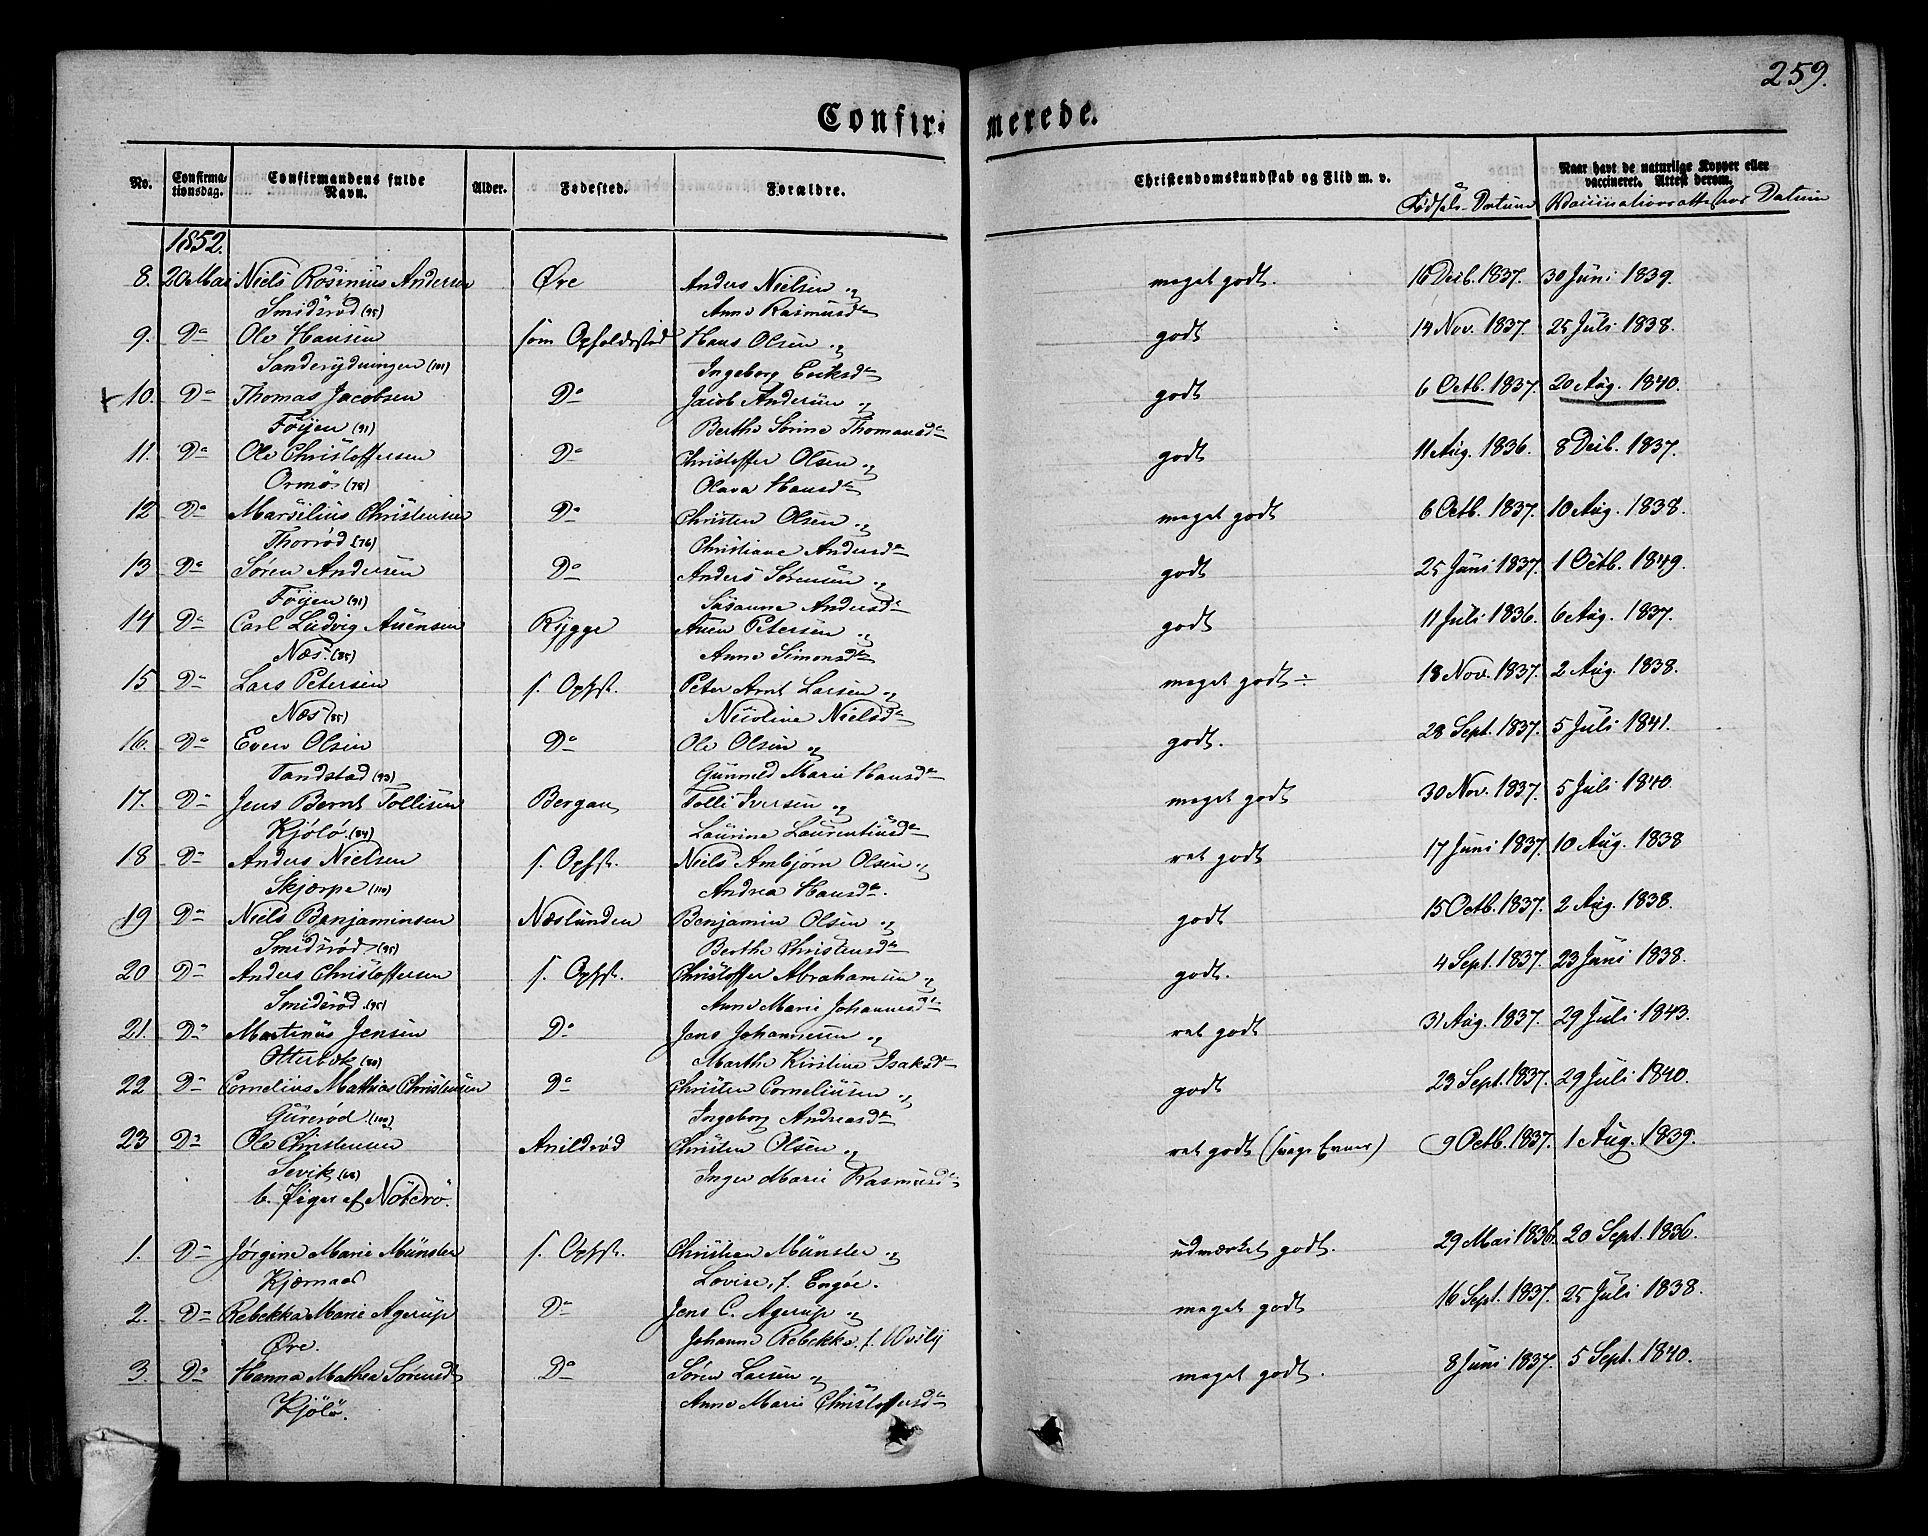 259.
Confirmerede.
No. Confirmationsdag. Confirmandens fulde Navn. Alder. Fødested. Forældre. Christendomskundskab og Flid m. v. Naar havt de naturlige Kopper eller vaccineret. Attest derom.
Fødsels-Datum Vaccinationsattestens Datum
1852.
8. 20 Mai Niels Rosinius Andersen Øre Anders Nielsen og meget godt. 16 Decb. 1837. 30 Juni 1839.
Smidsrød (95) Anne Rasmusdr
9. Do Ole Hansen som Opholdssted Hans Olsen og godt 14 Nov. 1837. 25 Juli 1838.
Sanderydningen (101) Ingeborg Eriksdr
10. Do Thomas Jacobsen Do Jacob Andersen og godt 6 Octb. 1837. 20 Aug. 1840.
Føyen (91) Berthe Sørine Thomasdr
11. Do Ole Christoffersen Do Christoffer Olsen og godt 11 Aug. 1836. 8 Decb. 1837.
Ormø (78) Olava Hansdr
12 Do Marsilius Christensen Do Christen Olsen og meget godt 6 Octb. 1837. 10 Aug. 1838.
Thorrød (76) Christiane Andersdr
13 Do Søren Andersen Do Anders Sørensen og godt 25 Juni 1837. 1 Octb. 1849.
Føyen (91) Susanne Andersdr
14 Do Carl Ludvig Auensen Rygge Auen Petersen og godt 11 Juli 1836. 6 Aug. 1837.
Næs. (85) Anne Simonsdr
15 Do Lars Petersen f. Ophst. Peter Arnt Larsen og meget godt ÷ 18 Nov. 1837. 2 Aug. 1838.
Næs (85) Nicoline Nielsdr
16. Do Even Olsen Do Ole Olsen og godt. 28 Sept. 1837. 5 Juli 1841.
Tandstad (93) Gunnild Marie Hansdr
17. Do Jens Bernt Tollisen Bergan Tolli Iversen og meget godt 30 Nov. 1837. 5 Juli 1840.
Kjølø. (84) Laurine Laurentiusdr
18 Do Anders Nielsen f. Ophst. Niels Ambjørn Olsen og ret godt 17 Juni 1837. 10 Aug. 1838
Skjærpe (110) Andrea Hansdr.
19 Do Niels Benjaminsen Næslunden Benjamin Olsen og godt 15 Octb. 1837. 2 Aug. 1838.
Smidsrød (95) Berthe Christensdr
20 Do Anders Christoffersen f. Ophst. Christoffer Abrahamsen og godt. 4 Sept. 1837. 23 Juni 1838.
Smidsrød (95) Anne Marie Johannesdr
21. Do Martinus Jensen Do Jens Johannesen og ret godt 31 Aug. 1837. 29 Juli 1843.
Otterbæk (80) Marthe Kirstine Isaksdr
22 Do Cornelius Mathias Christensen Do Christen Corneliusen og godt 23 Sept. 1837. 29 Juli 1840.
Gurerød (100) Ingeborg Andreasdr
23 Do Ole Christensen Arnildrød Christen Olsen og ret godt (svage Evner) 9 Octb. 1837. 1 Aug. 1839.
Sevik (68) Inger Marie Rasmusdr
b. Piger af Nøterø.
1. Do Jørgine Marie Münster f. Ophst. Christian Münster og udmærket godt. 29 Mai 1836. 20 Sept. 1836.
Kjærnaes Lovise, f. Engøe.
2. Do Rebekka Marie Agerup Do Jens C. Agerup og meget godt 16 Sept. 1837. 25 Juli 1838.
Øre. Johanne Rebekka, f.
3. Do Hanna Mathea Sørensdr Do Søren Larsen og meget godt. 8 Juni 1837. 5 Sept. 1840.
Kjølø. Anne Marie Christoffersdr